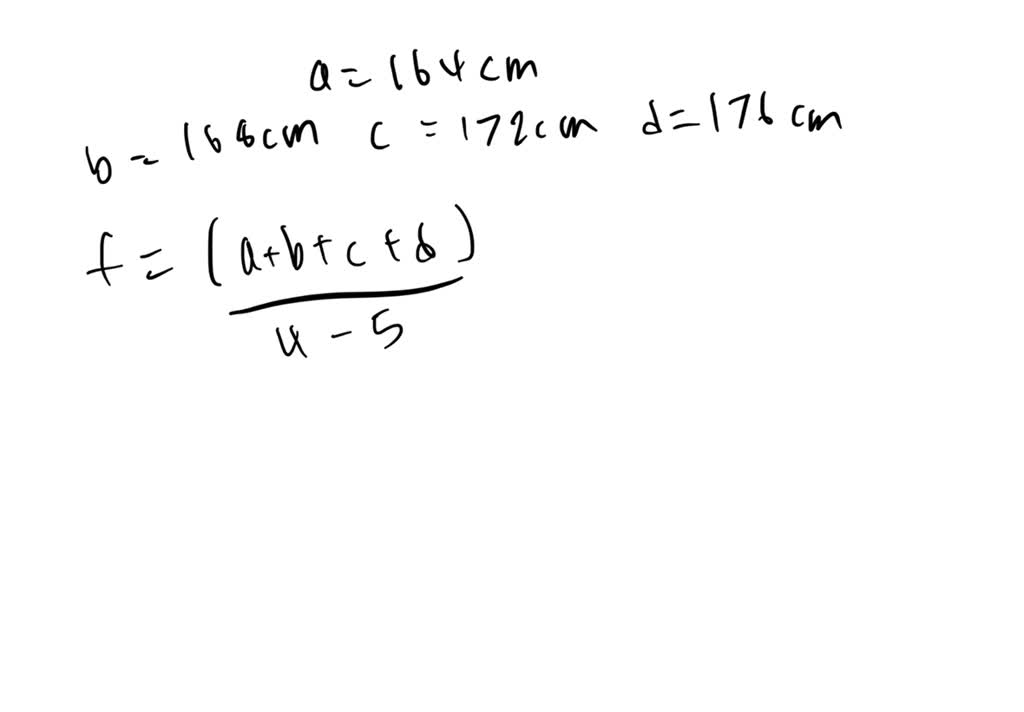 a = 164 cm
b = 168 cm c = 172 cm d = 176 cm
f = (a + b + c + d)
4 - 5